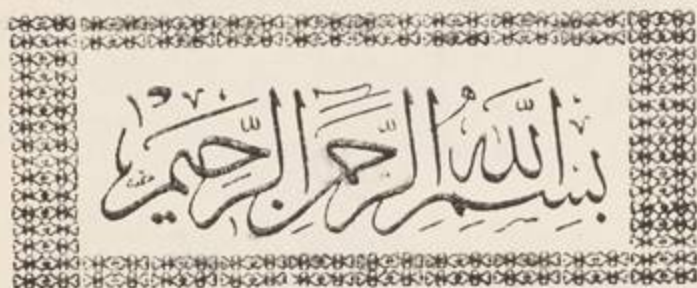 ١٩٧٠
بسم الله الرحمن الرحيم